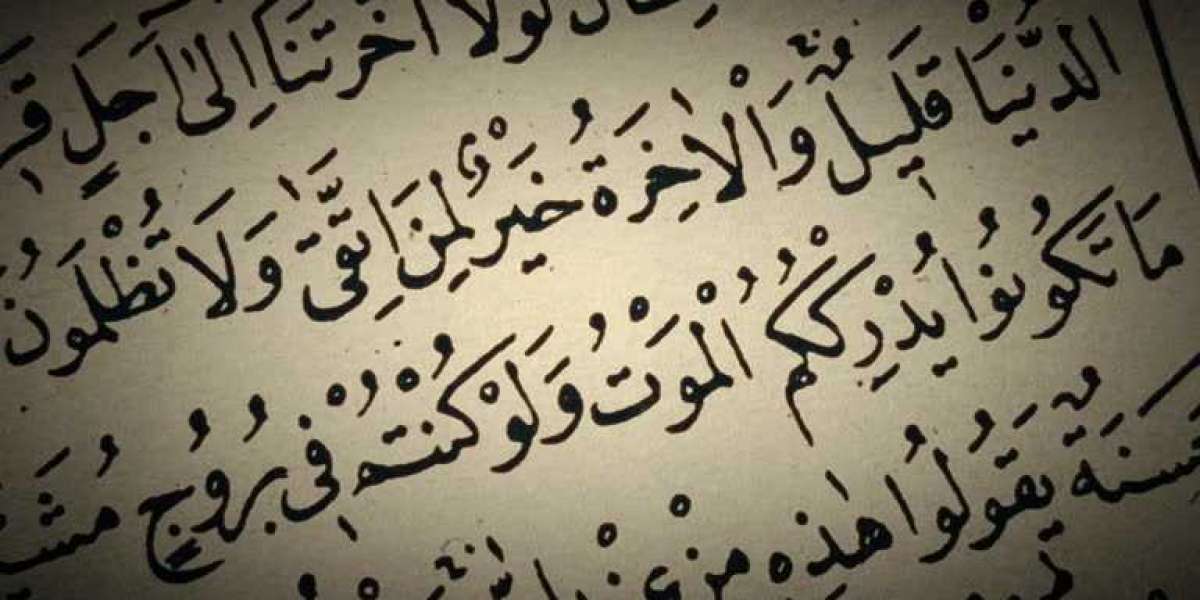 لَوْلَا اَخَّرْتَنَا اِلٰى اَجَلٍ
الدُّنْيَا قَلِيلٌ وَالْاٰخِرَةُ خَيْرٌ لِمَنِ اتَّقٰى وَلَا تُظْلَمُونَ
مَا تَكُونُوا يُدْرِكْكُمُ الْمَوْتُ وَلَوْ كُنْتُمْ فِى بُرُوجٍ
حَسَنَةٌ يَقُولُوا هٰذِهِ مِنْ